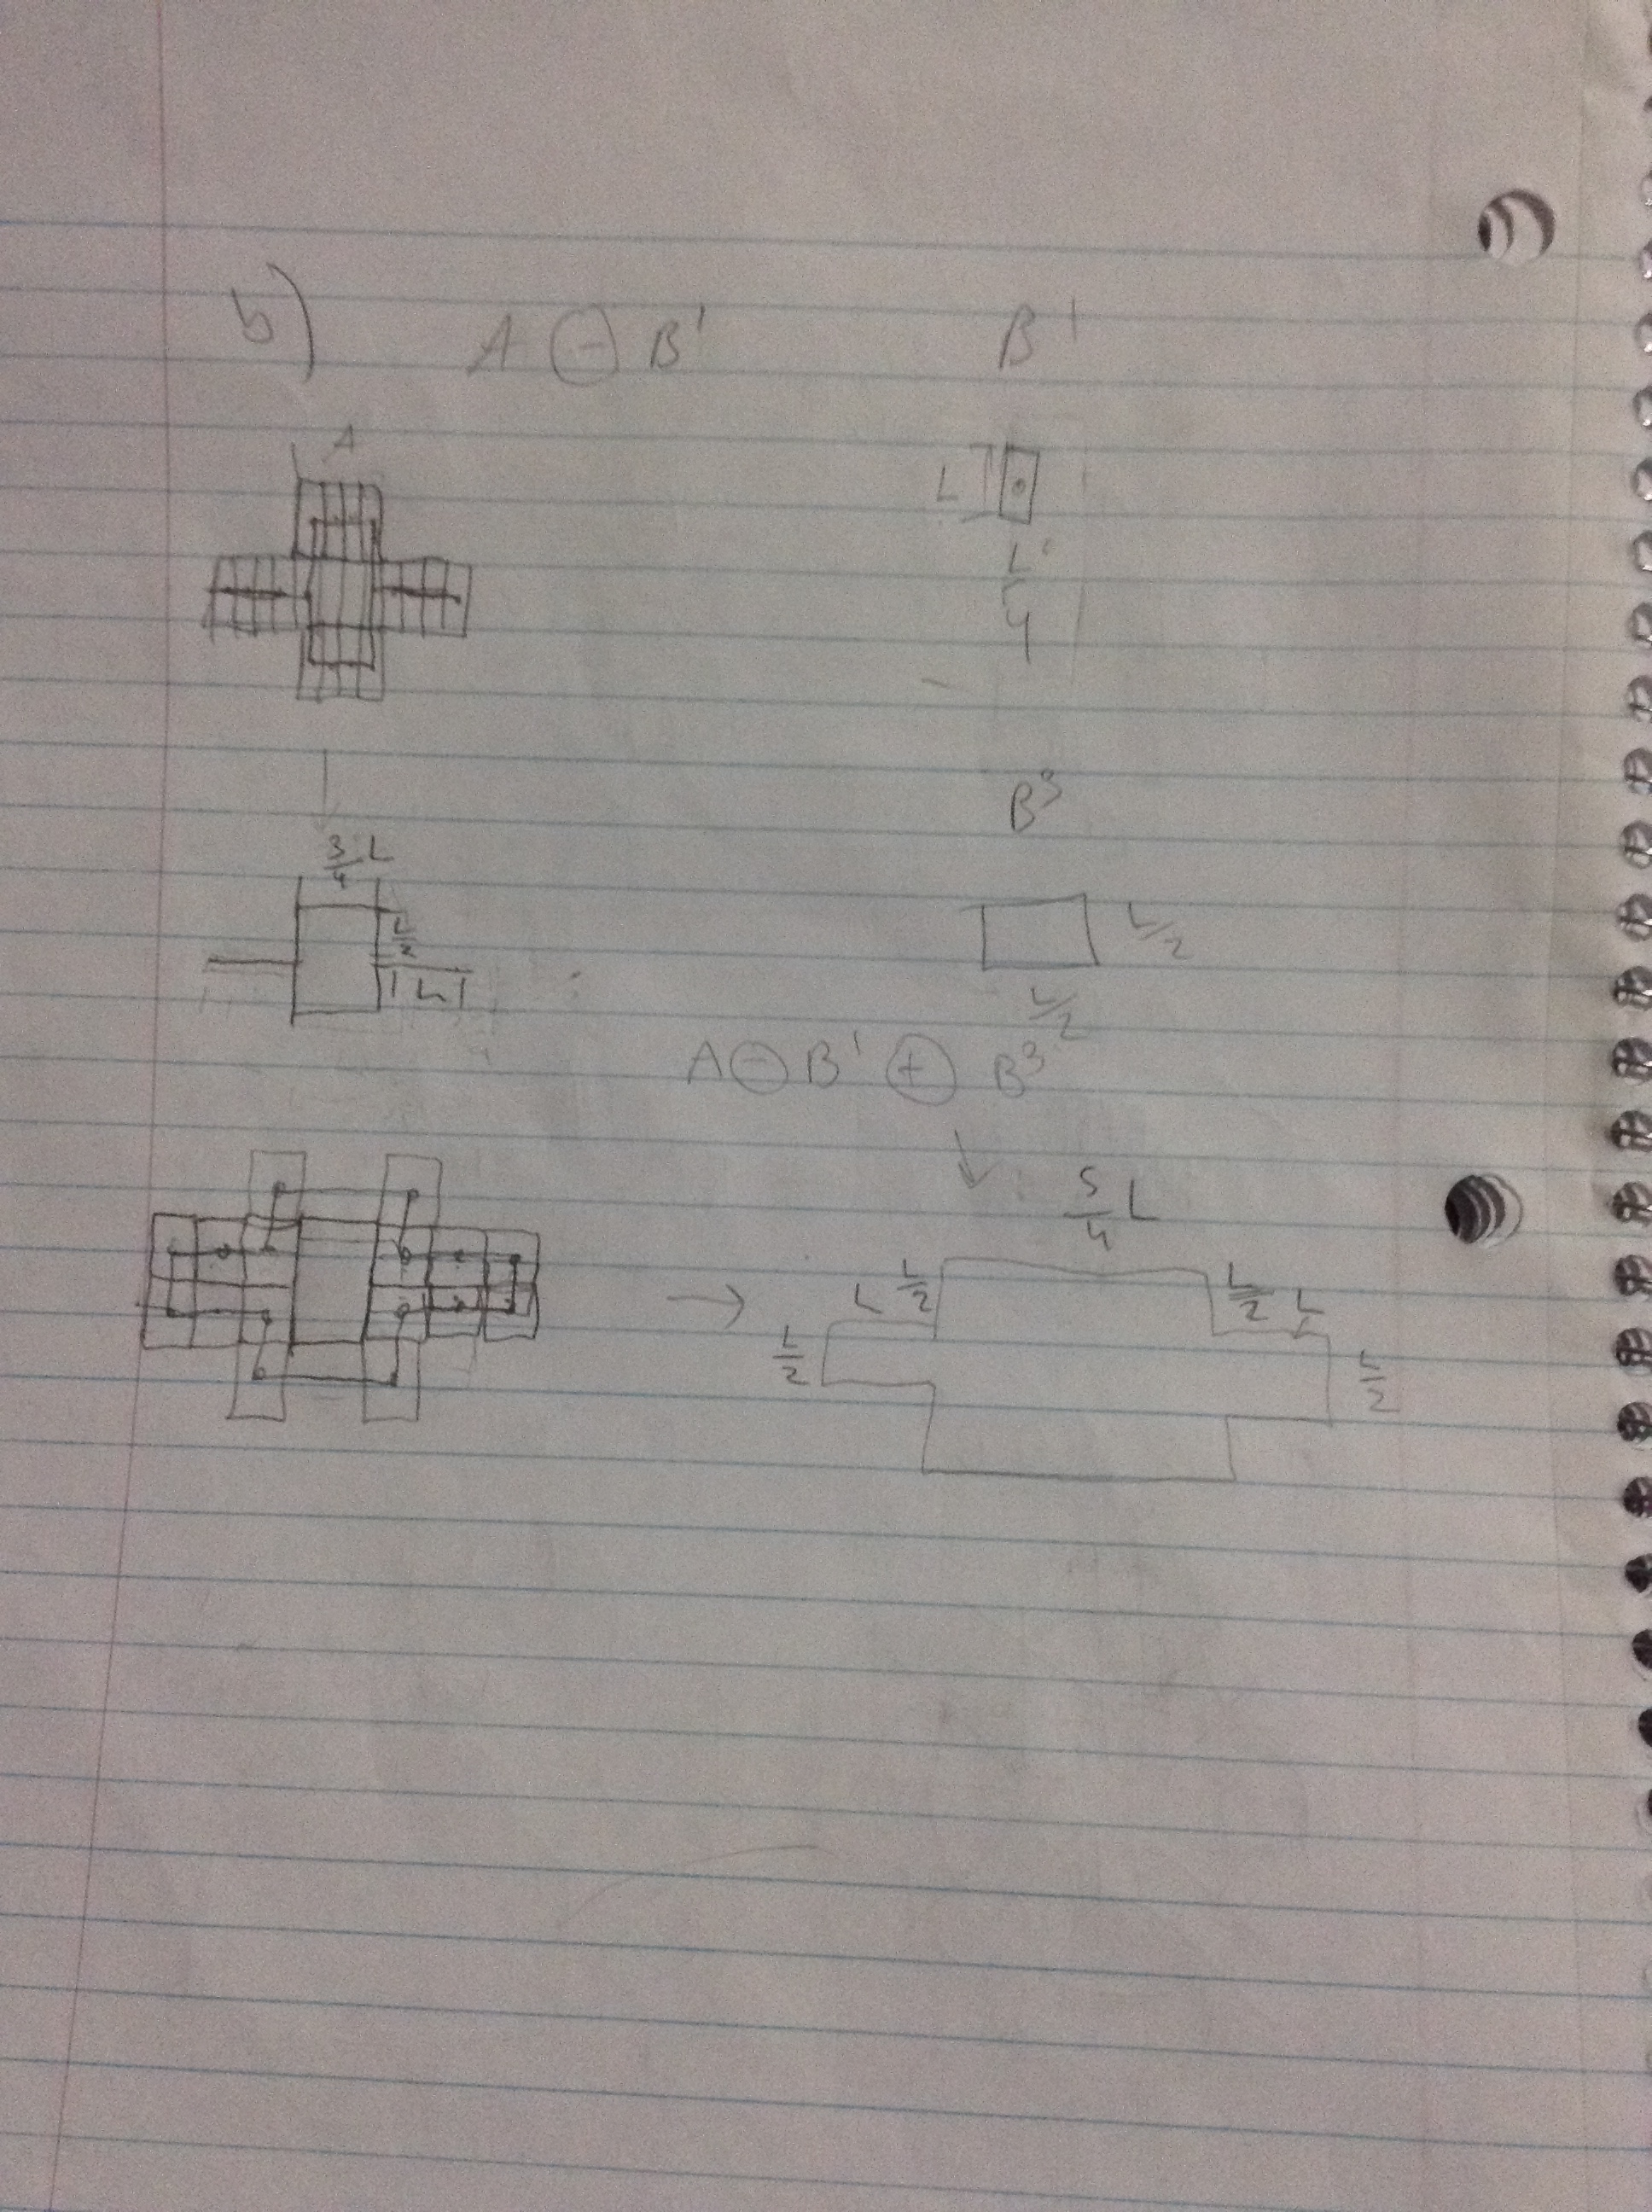 b) A ⊖ B¹ B¹
A
L
L/4
B³
3/4 L
L/2
L/2
L
L/2
A ⊖ B¹ ⊕ B³
5/4 L
L L/2 L/2 L
L/2 L/2